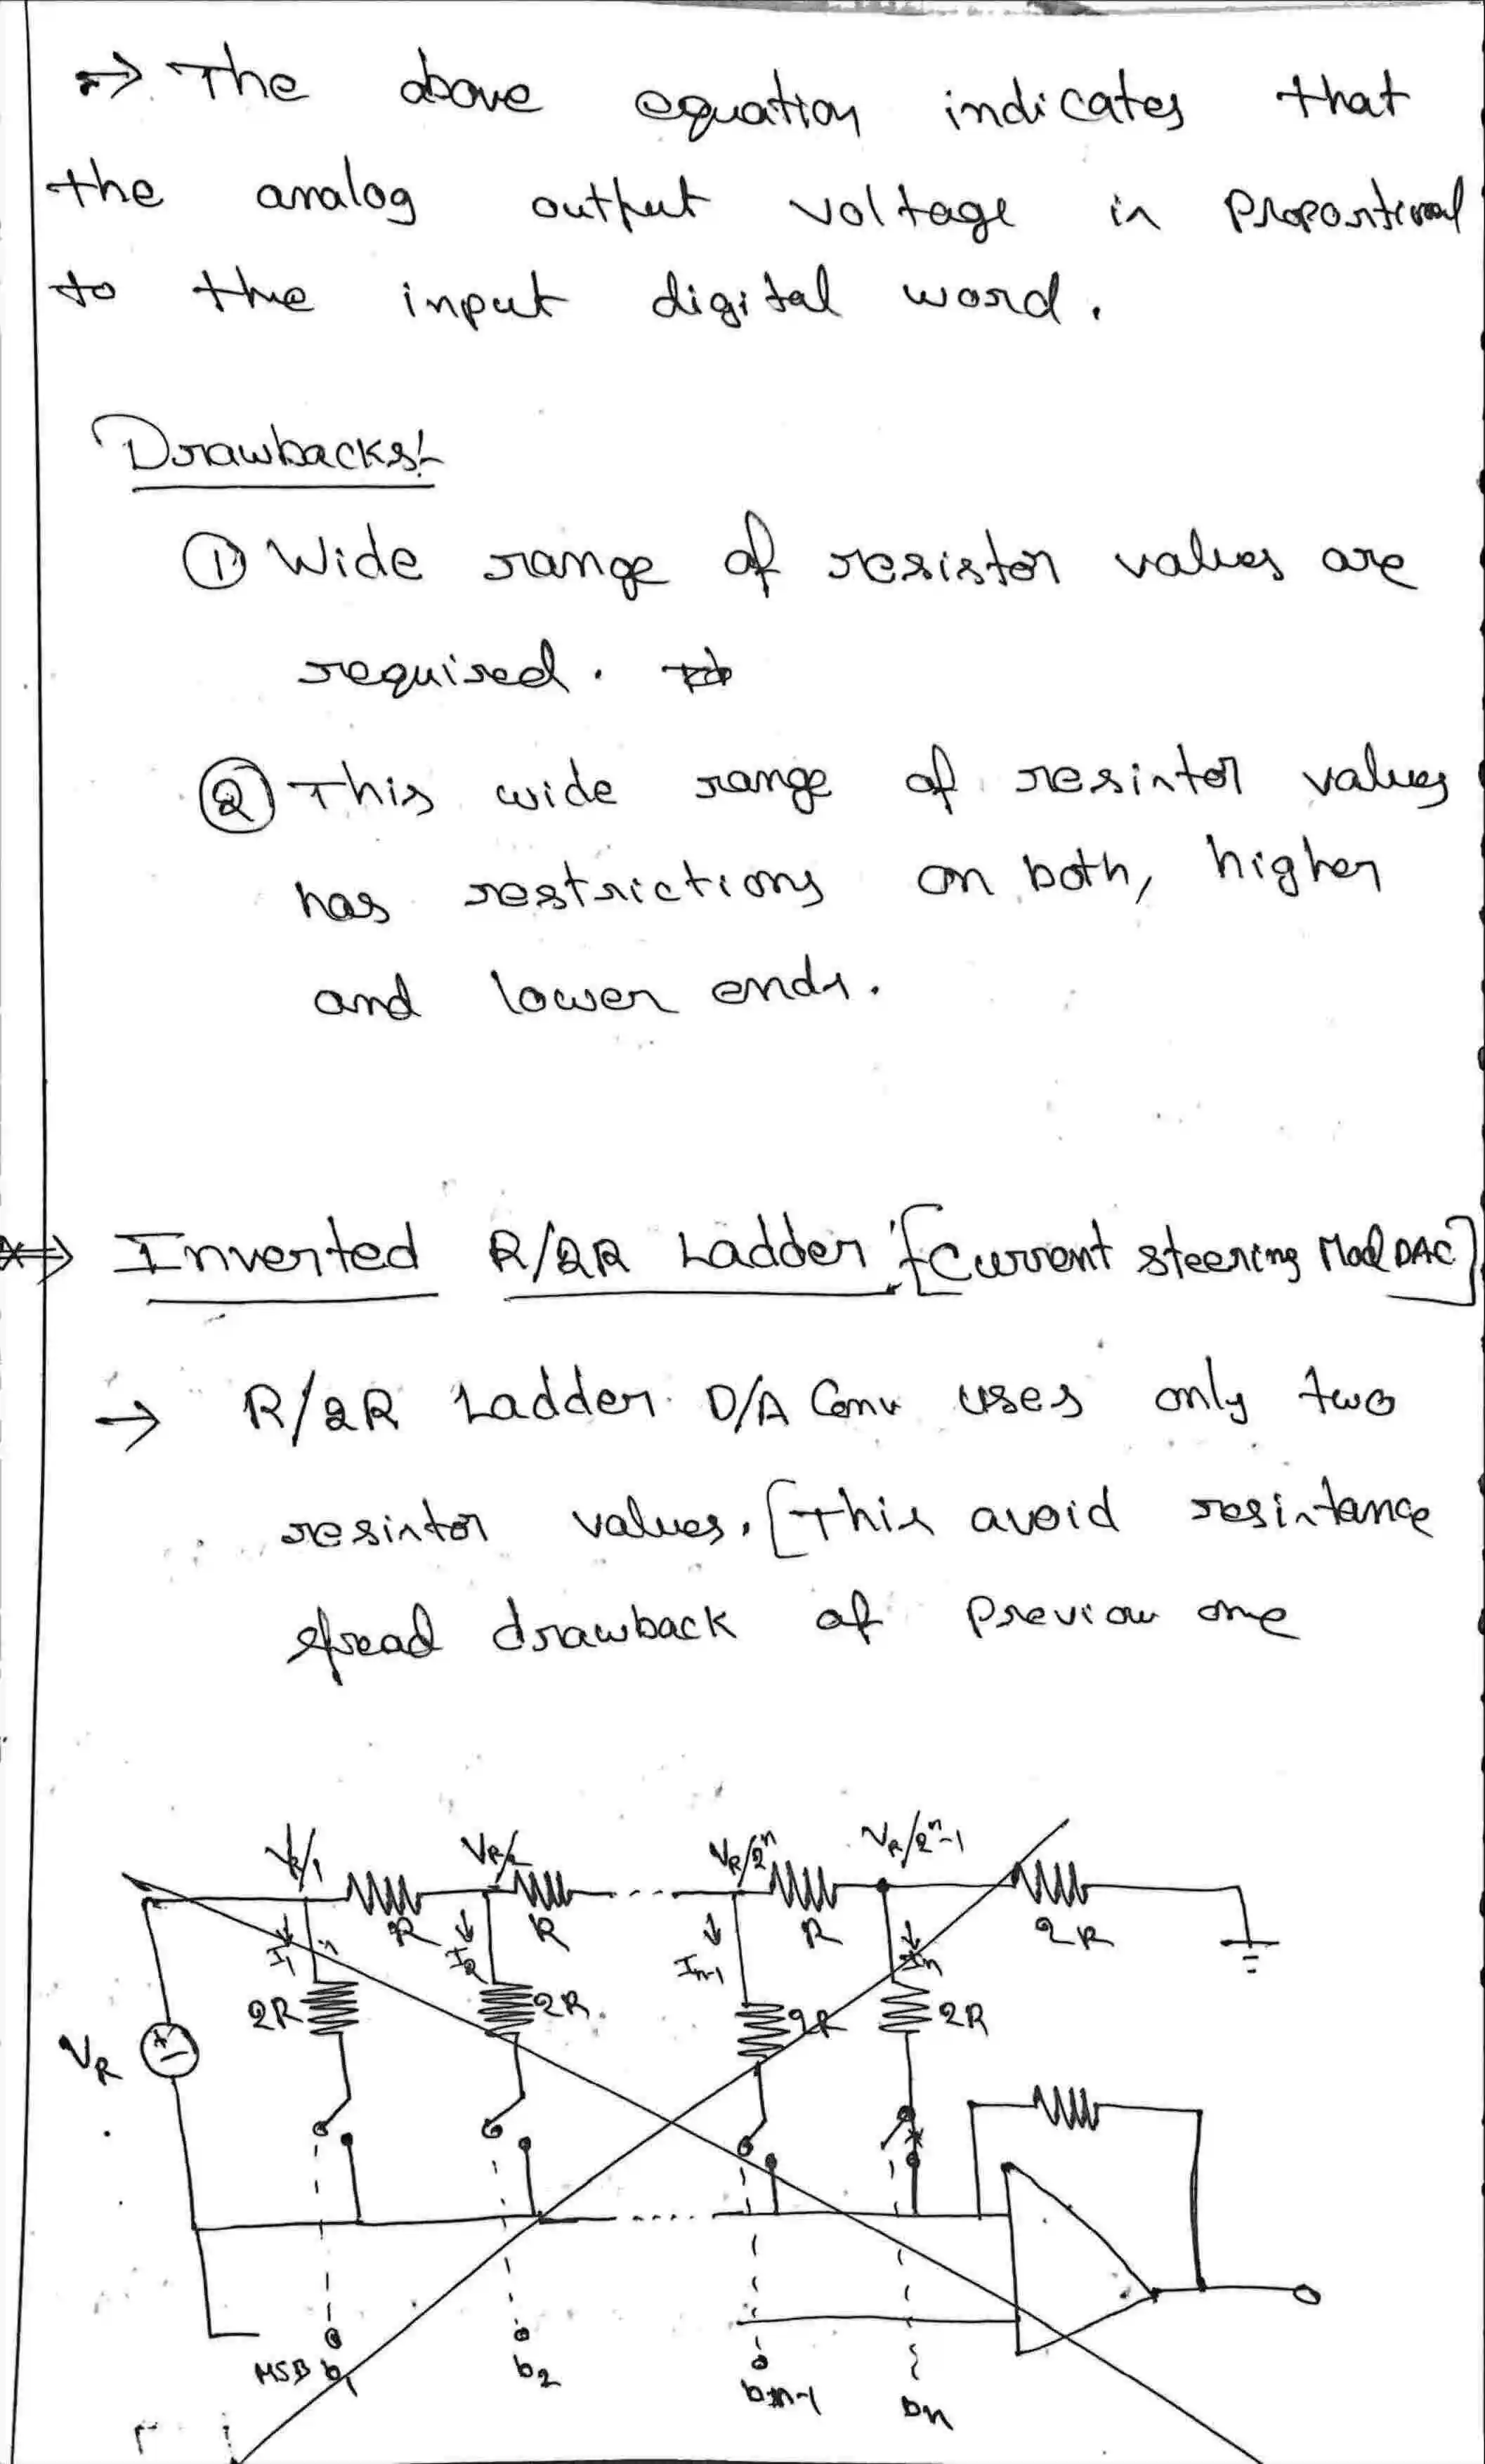 → The above equation indicates that
the analog output voltage is proportional
to the input digital word.
Drawbacks:-
① Wide range of resistor values are
required.
② This wide range of resistor values
has restrictions on both, higher
and lower ends.
Inverted R/2R Ladder :- [Current steering Mod DAC]
→ R/2R Ladder D/A Conv uses only two
resistor values. [This avoid resistance
spread drawback of previou one
VR/1 VR/2 VR/2^n VR/2^n-1
R R R 2R
I1 I2 In-1 In
2R 2R 2R 2R
VR
MSB b1 b2 bn-1 bn